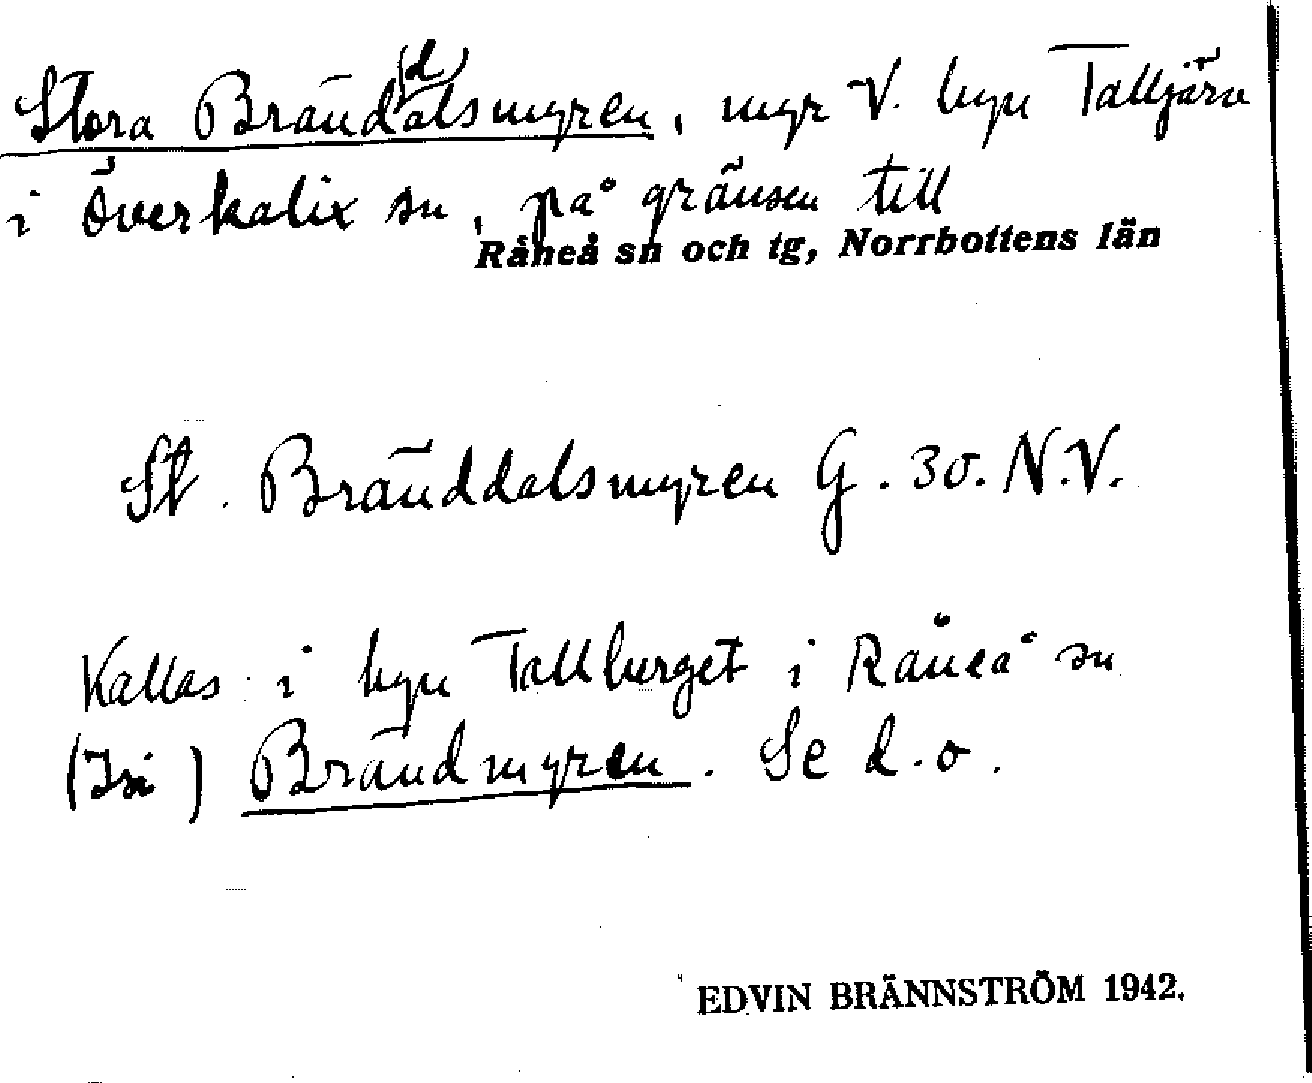 Stora Bränd(d)alsmyren, myr V. byn Talljärv
i Överkalix sn, på gränsen till
Råneå sn och tg, Norrbottens län
St. Bränddalsmyren G. 30. N.V.
Kallas i byn Tallberget i Råneå sn
Brändmyren. Se d.o.
EDVIN BRÄNNSTRÖM 1942.